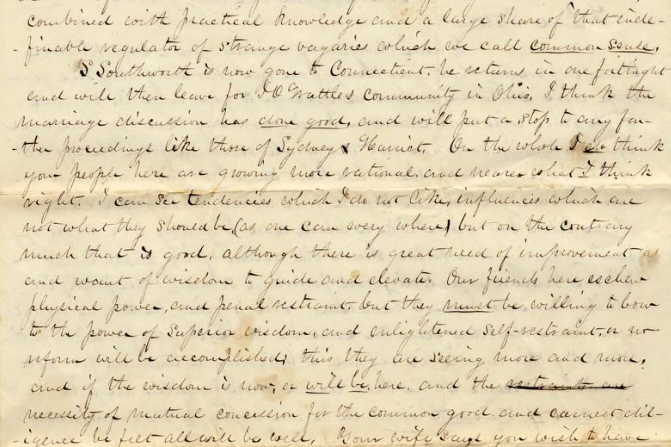 combined with practical knowledge and a large share of that inde-
-finable regulator of strange vagaries which we call common sense.
S Southworth is now gone to Connecticut. he returns in one fortnight
and will then leave for J O Wattles community in Ohio, I think the
marriage discussion has done good, and will put a stop to any far-
-ther proceedings like those of Sydney & Harriot. On the whole I do think
your people here are growing more rational, and nearer what I think
right. I can see tendencies which I do not like, influences which are
not what they should be (as one can every where) but on the contrary
much that is good, although there is great need of improvement as
and want of wisdom to guide and elevate. Our friends here eschew
physical power, and penal restraint, but they must be willing to bow
to the power of superior wisdom, and enlightened self-restraint, or no
reform will be accomplished; this they are seeing more and more,
and if the wisdom is now, or will be, here, and the restraints are
necessity of mutual concession for the common good and earnest dil-
-igence be felt all will be well. Your wife says you wish to have